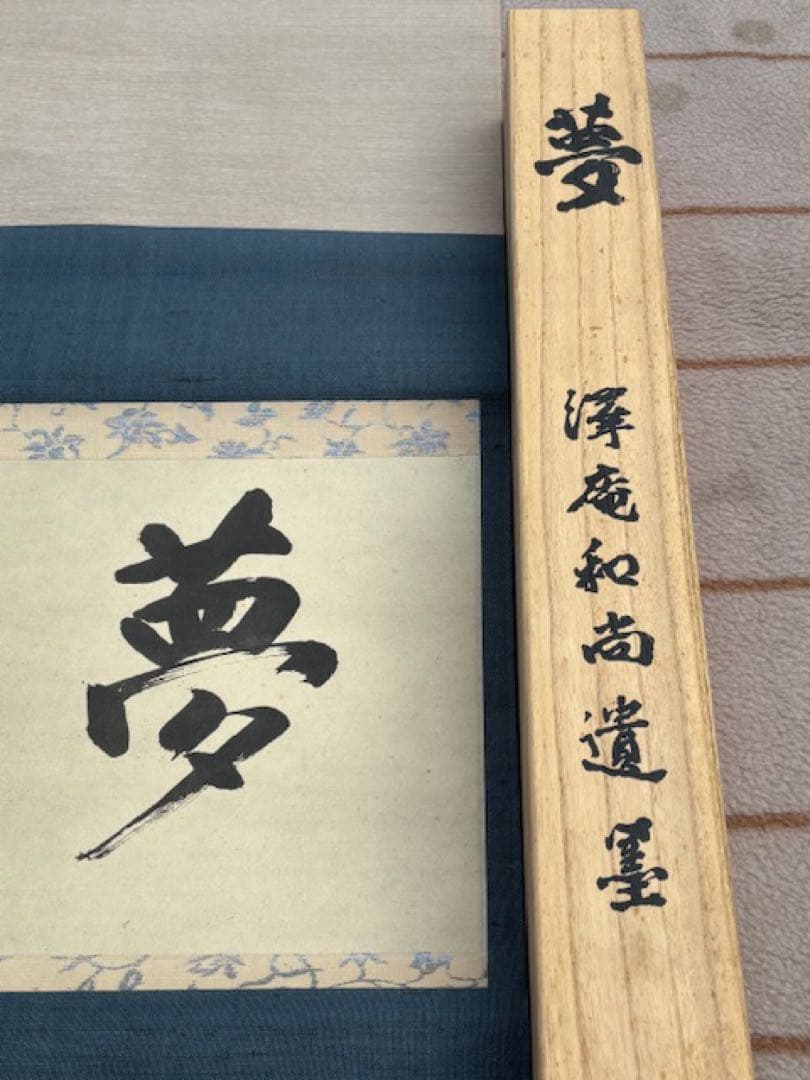 夢
夢
澤庵和尚遺墨